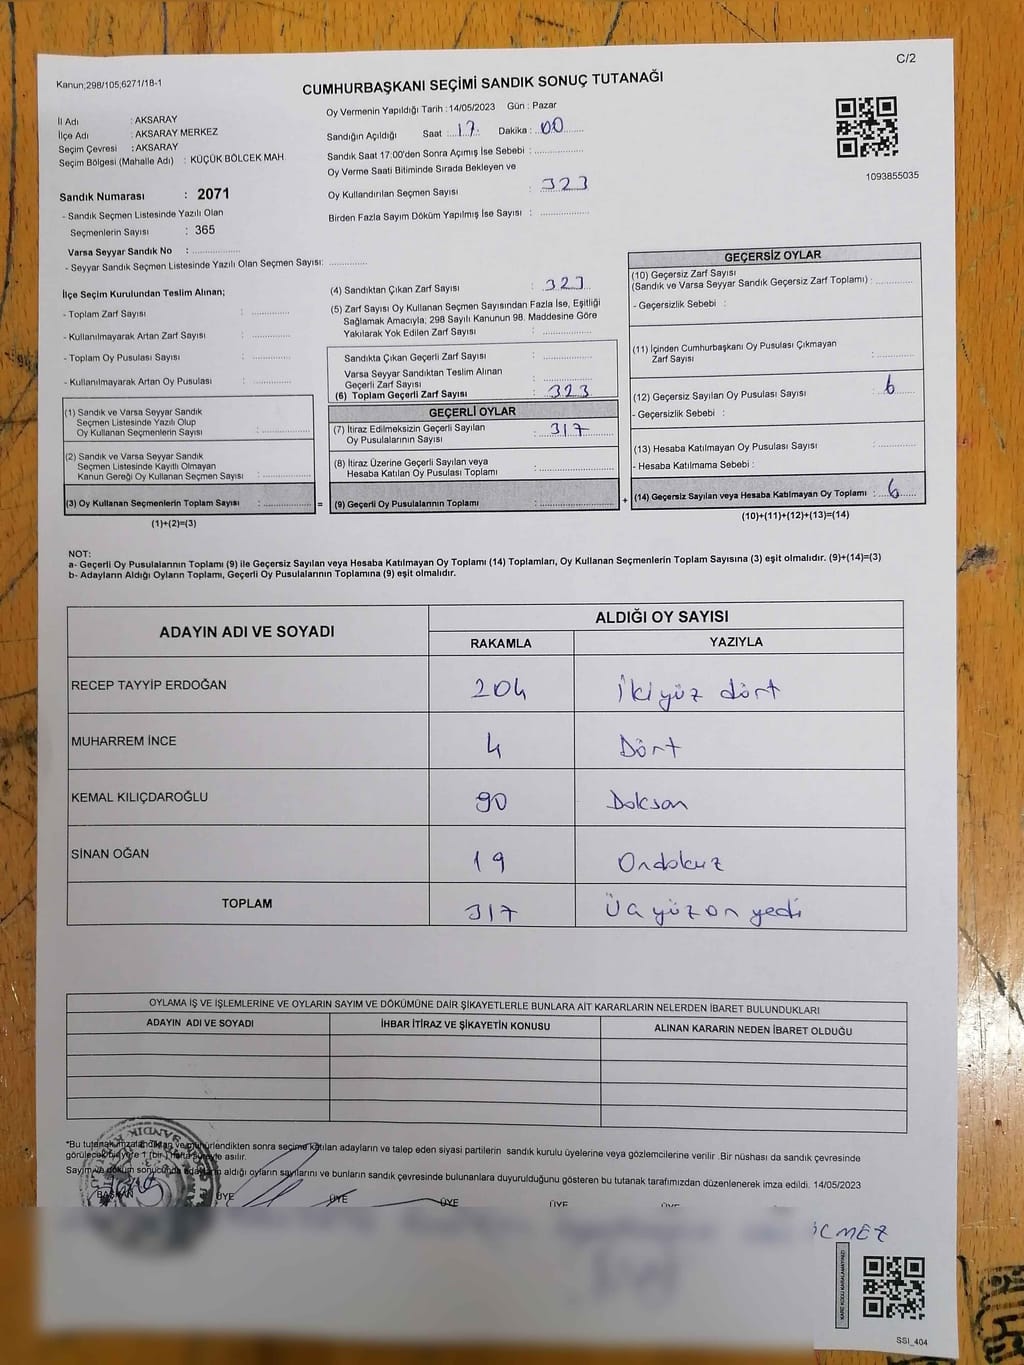 C/2
Kanun;298/105;6271/18-1
CUMHURBAŞKANI SEÇİMİ SANDIK SONUÇ TUTANAĞI
Oy Vermenin Yapıldığı Tarih : 14/05/2023 Gün : Pazar
İl Adı : AKSARAY
İlçe Adı : AKSARAY MERKEZ
Seçim Çevresi : AKSARAY
Seçim Bölgesi (Mahalle Adı) : KÜÇÜK BÖLCEK MAH.
Sandığın Açıldığı Saat : 17 Dakika : 00
Sandık Saat 17:00'den Sonra Açımış İse Sebebi :
Oy Verme Saati Bitiminde Sırada Bekleyen ve
Oy Kullandırılan Seçmen Sayısı : 323
Birden Fazla Sayım Döküm Yapılmış İse Sayısı :
1093855035
Sandık Numarası : 2071
- Sandık Seçmen Listesinde Yazılı Olan
Seçmenlerin Sayısı : 365
Varsa Seyyar Sandık No :
- Seyyar Sandık Seçmen Listesinde Yazılı Olan Seçmen Sayısı:
İlçe Seçim Kurulundan Teslim Alınan;
- Toplam Zarf Sayısı :
- Kullanılmayarak Artan Zarf Sayısı :
- Toplam Oy Pusulası Sayısı :
- Kullanılmayarak Artan Oy Pusulası :
(1) Sandık ve Varsa Seyyar Sandık
Seçmen Listesinde Yazılı Olup
Oy Kullanan Seçmenlerin Sayısı :
(2) Sandık ve Varsa Seyyar Sandık
Seçmen Listesinde Kayıtlı Olmayan
Kanun Gereği Oy Kullanan Seçmen Sayısı :
(3) Oy Kullanan Seçmenlerin Toplam Sayısı :
(1)+(2)=(3)
(4) Sandıktan Çıkan Zarf Sayısı : 323
(5) Zarf Sayısı Oy Kullanan Seçmen Sayısından Fazla İse, Eşitliği
Sağlamak Amacıyla, 298 Sayılı Kanunun 98. Maddesine Göre
Yakılarak Yok Edilen Zarf Sayısı :
Sandıkta Çıkan Geçerli Zarf Sayısı :
Varsa Seyyar Sandıktan Teslim Alınan
Geçerli Zarf Sayısı :
(6) Toplam Geçerli Zarf Sayısı : 323
GEÇERLİ OYLAR
(7) İtiraz Edilmeksizin Geçerli Sayılan
Oy Pusulalarının Sayısı : 317
(8) İtiraz Üzerine Geçerli Sayılan veya
Hesaba Katılan Oy Pusulası Toplamı :
= (9) Geçerli Oy Pusulalarının Toplamı :
GEÇERSİZ OYLAR
(10) Geçersiz Zarf Sayısı
(Sandık ve Varsa Seyyar Sandık Geçersiz Zarf Toplamı) :
- Geçersizlik Sebebi :
(11) İçinden Cumhurbaşkanı Oy Pusulası Çıkmayan
Zarf Sayısı :
(12) Geçersiz Sayılan Oy Pusulası Sayısı : 6
- Geçersizlik Sebebi :
(13) Hesaba Katılmayan Oy Pusulası Sayısı :
- Hesaba Katılmama Sebebi :
+ (14) Geçersiz Sayılan veya Hesaba Katılmayan Oy Toplamı : 6
(10)+(11)+(12)+(13)=(14)
NOT:
a- Geçerli Oy Pusulalarının Toplamı (9) ile Geçersiz Sayılan veya Hesaba Katılmayan Oy Toplamı (14) Toplamları, Oy Kullanan Seçmenlerin Toplam Sayısına (3) eşit olmalıdır. (9)+(14)=(3)
b- Adayların Aldığı Oyların Toplamı, Geçerli Oy Pusulalarının Toplamına (9) eşit olmalıdır.
ADAYIN ADI VE SOYADI
ALDIĞI OY SAYISI
RAKAMLA YAZIYLA
RECEP TAYYİP ERDOĞAN 204 İkiyüz dört
MUHARREM İNCE 4 Dört
KEMAL KILIÇDAROĞLU 90 Doksan
SİNAN OĞAN 19 Ondokuz
TOPLAM 317 Üçyüz on yedi
OYLAMA İŞ VE İŞLEMLERİNE VE OYLARIN SAYIM VE DÖKÜMÜNE DAİR ŞİKAYETLERLE BUNLARA AİT KARARLARIN NELERDEN İBARET BULUNDUKLARI
ADAYIN ADI VE SOYADI İHBAR İTİRAZ VE ŞİKAYETİN KONUSU ALINAN KARARIN NEDEN İBARET OLDUĞU
*Bu tutanak imzalandıktan ve mühürlendikten sonra seçime katılan adayların ve talep eden siyasi partilerin sandık kurulu üyelerine veya gözlemcilerine verilir .Bir nüshası da sandık çevresinde
görülecek bir yere 1 (bir) hafta süreyle asılır.
Sayım ve döküm sonucunda adayların aldığı oyların sayılarını ve bunların sandık çevresinde bulunanlara duyurulduğunu gösteren bu tutanak tarafımızdan düzenlenerek imza edildi. 14/05/2023
BAŞKAN ÜYE ÜYE ÜYE ÜYE ÜYE
SSI_404